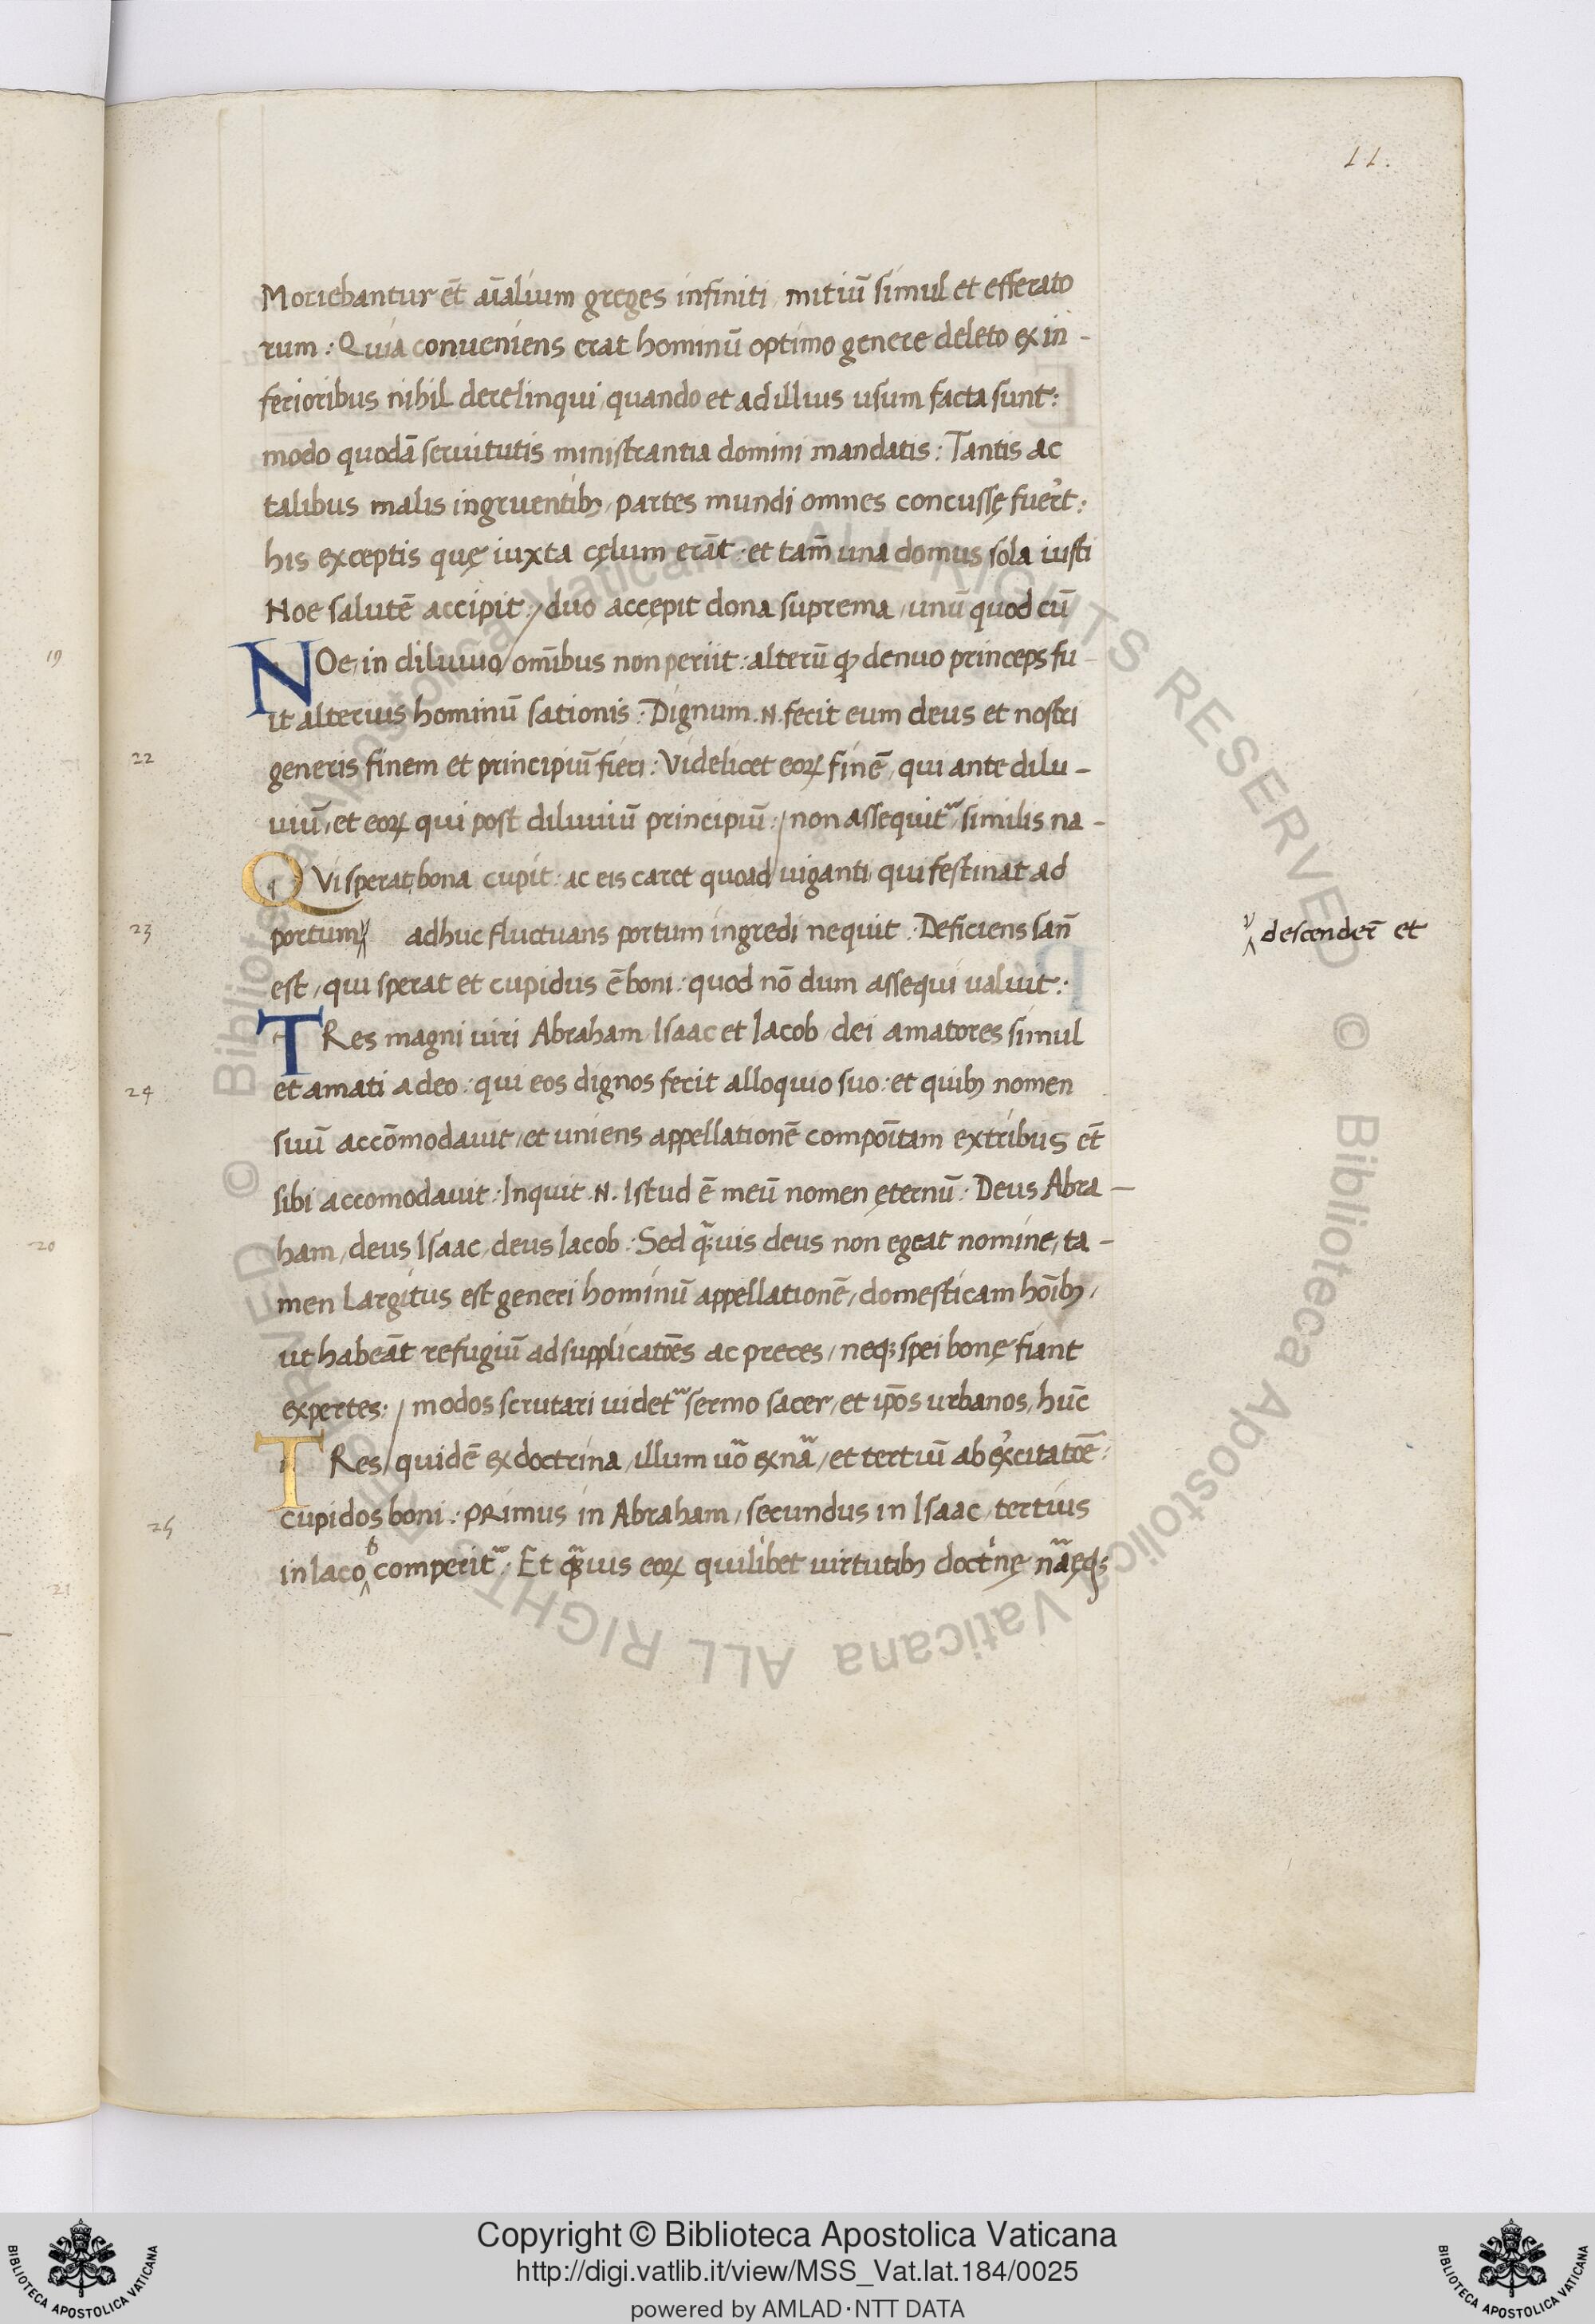 11.
Moriebantur et̄ aīalium greges infiniti, mitiū simul et efferato
rum: Quia conueniens erat hominū optimo genere deleto ex in-
ferioribus nihil derelinqui, quando et ad illius usum facta sunt:
modo quodā seruitutis ministrantia domini mandatis: Tantis ac
talibus malis ingruentib; partes mundi omnes concussę fuer̄t:
his exceptis quę iuxta cęlum erāt: et tam̄ una domus sola iusti
Noe salutē accipit: / duo accępit dona suprema, unū quod cū
19
NOe, in diluuio / om̄ibus non periit: alterū ꝙ denuo princeps fu-
it alterius hominū sationis: Dignum .N. fecit eum deus et nostri
22
generis finem et principiū fieri: Videlicet eoꝝ finē, qui ante dilu-
uiū, et eoꝝ qui post diluuiū principiū: / non assequit᷑ similis na-
QVi sperat, bona cupit: ac eis caret quoad / uiganti, qui festinat ad
23
portum adhuc fluctuans portum ingredi nequit: Deficiens san̄
descender̄ et
est, qui sperat et cupidus ē boni: quod nō dum assequi ualuit:
TRes magni uiri Abraham, Isaac et Iacob, dei amatores simul
24
et amati a deo: qui eos dignos fecit alloquio suo: et quib; nomen
suū accōmodauit, et uniens appellationē compoītam ex tribus et̄
sibi accomodauit: Inquit .N. Istud ē meū nomen ęternū: Deus Abra-
20
ham, deus Isaac, deus Iacob: Sed q̃uis deus non egeat nomine, ta-
men largitus est generi hominū appellationē, domesticam hoīb;,
ut habeāt refugiū ad supplicatōes ac preces, neq; spei bonę fiant
expertes: / modos scrutari uidet᷑ sermo sacer, et ip̄os urbanos, hūc
TRes / quidē ex doctrina, illum uo᷑ ex na᷑, et tertiū ab exercitatōe:
25
cupidos boni: PRimus in Abraham, secundus in Isaac, tertius
in Iacob comperit᷑: Et q̃uis eoꝝ quilibet uirtutib; doctⁱnę na᷑ęq;
21
Copyright © Biblioteca Apostolica Vaticana
http://digi.vatlib.it/view/MSS_Vat.lat.184/0025
powered by AMLAD·NTT DATA
BIBLIOTECA APOSTOLICA VATICANA
BIBLIOTECA APOSTOLICA VATICANA
© Biblioteca Apostolica Vaticana ALL RIGHTS RESERVED
© Biblioteca Apostolica Vaticana ALL RIGHTS RESERVED